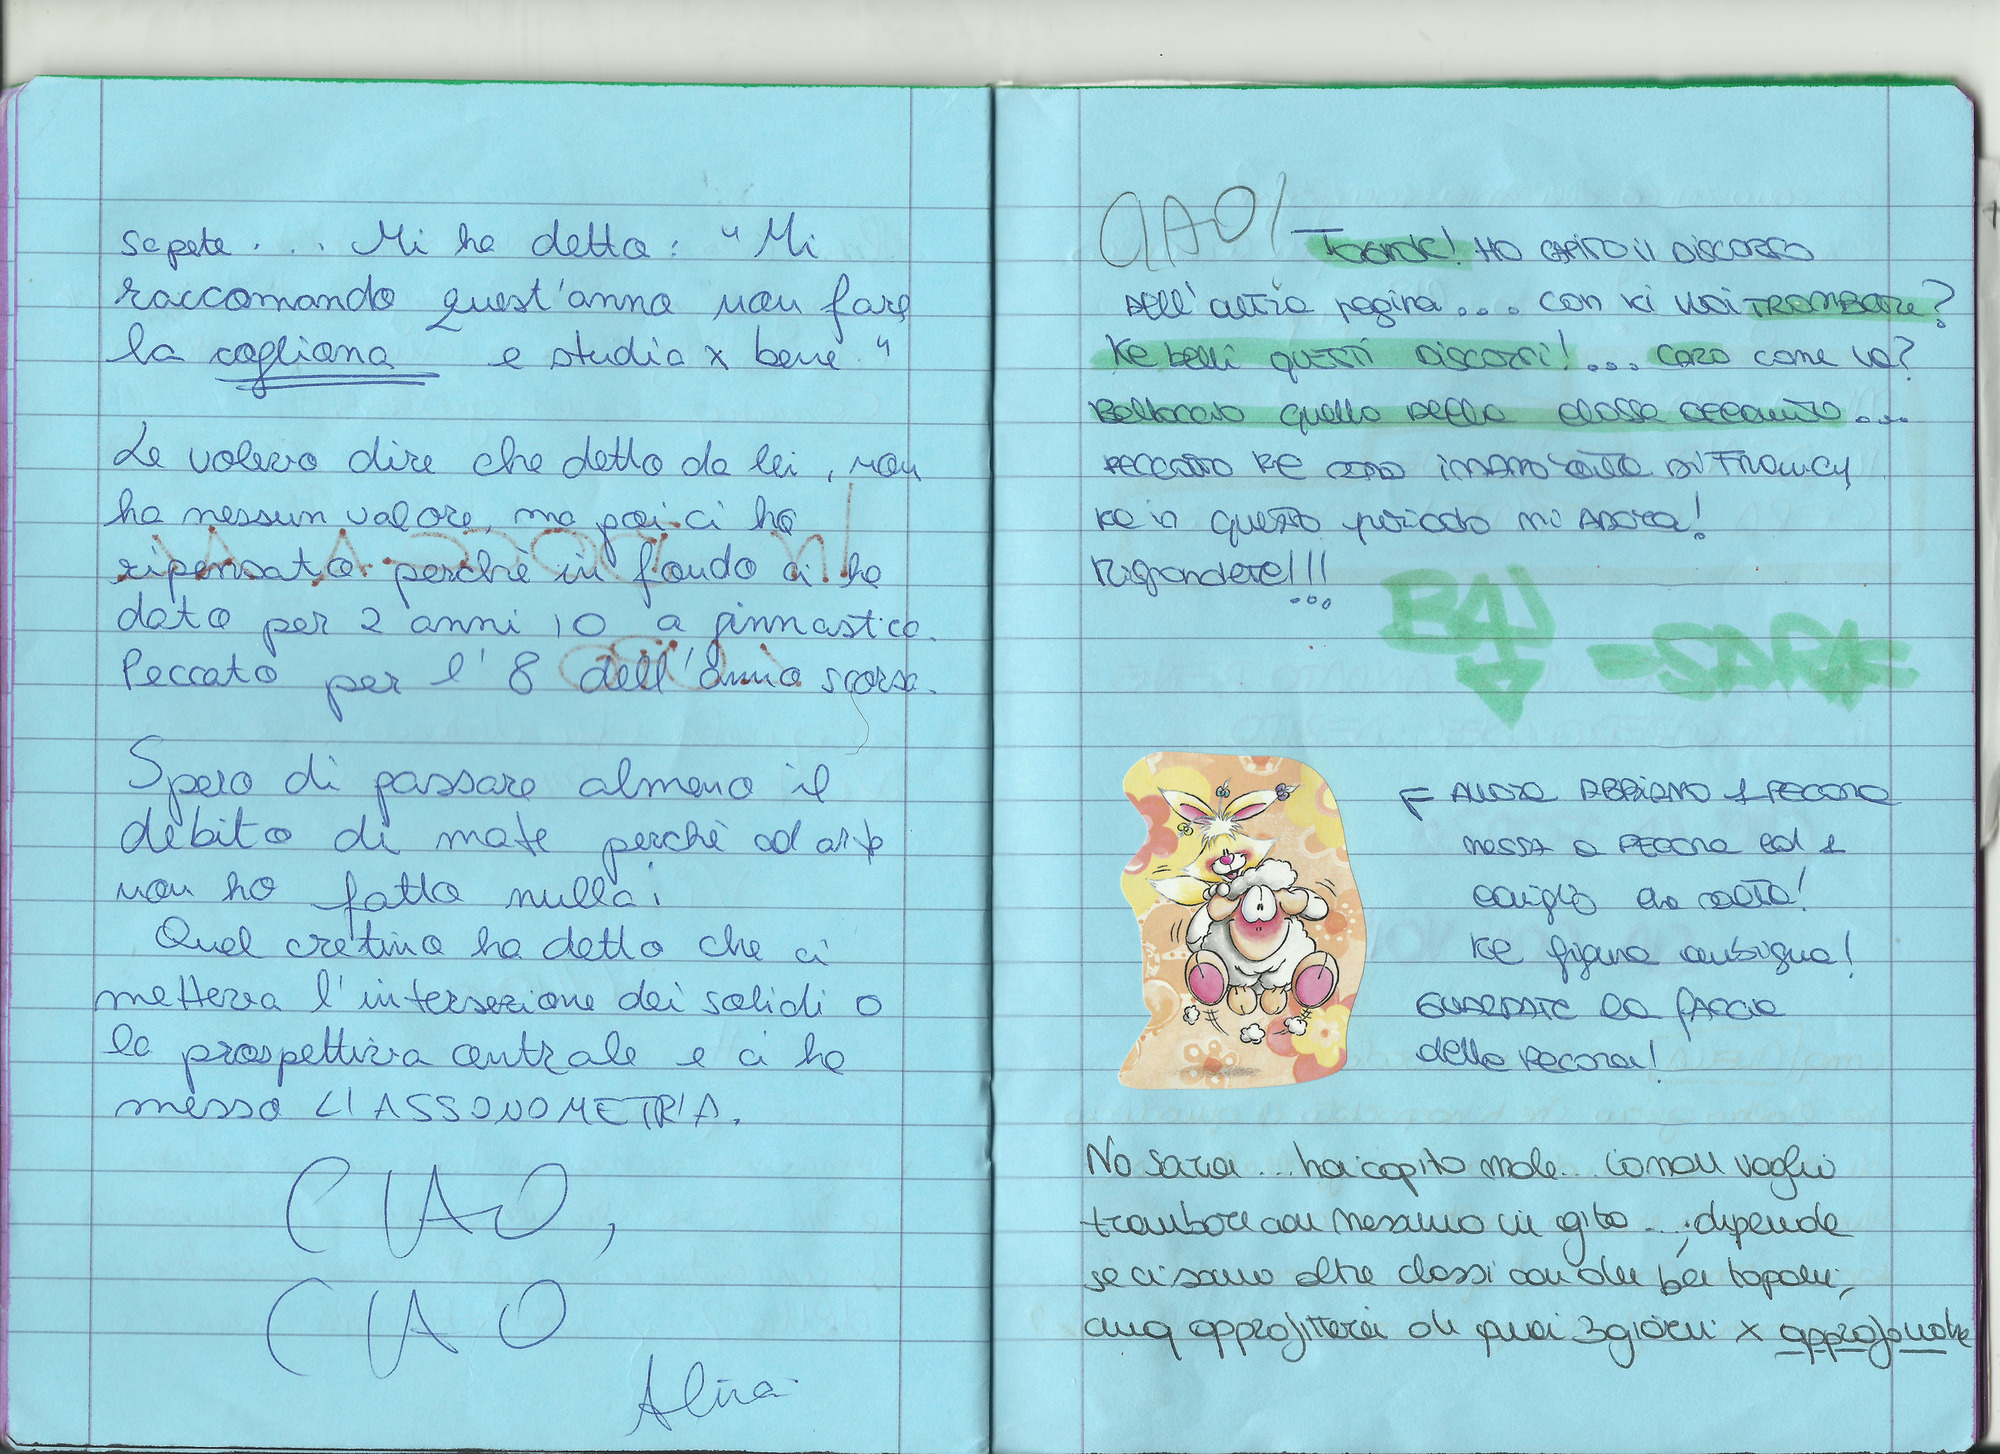 sapete . . . Mi ha detto: "Mi
raccomando quest'anno non fare
la cogliona e studia x bene."
Le volevo dire che detto da lei, non
ha nessun valore, ma poi ci ho
ripensato perchè in fondo ci ha
dato per 2 anni 10 a ginnastica.
Peccato per l'8 dell'anno scorso.
Spero di passare almeno il
debito di mate perchè ad arte
non ho fatto nulla!
Quel cretino ha detto che ci
metteva l'intersezione dei solidi o
la prospettiva centrale e ci ha
messo L'ASSONOMETRIA.
CIAO,
CIAO
Alina
CIAO!
HO CAPITO il DISCORSO
DELL'altra pagina... con ki vuoi TROMBARE?
Ke belli QUESTI DISCORSI!... CARO come va?
Belloccio quello della classe accanto...
PECCATO KE sono INNAMORATA DI FRANCY
KE in questo periodo mi ADORA!
Rispondete!!!
BAJ
=SARA=
Allora ABBIAMO 1 PECORA
messa a PECORA ed 1
coniglio che salta!
KE figura ambigua!
GUARDATE la faccia
della PECORA!
No Sara... hai capito male... io non voglio
trombare con nessuno in gita...; dipende
se ci sono altre classi con dei bei topolini,
approfitterei di quei 3 giorni x